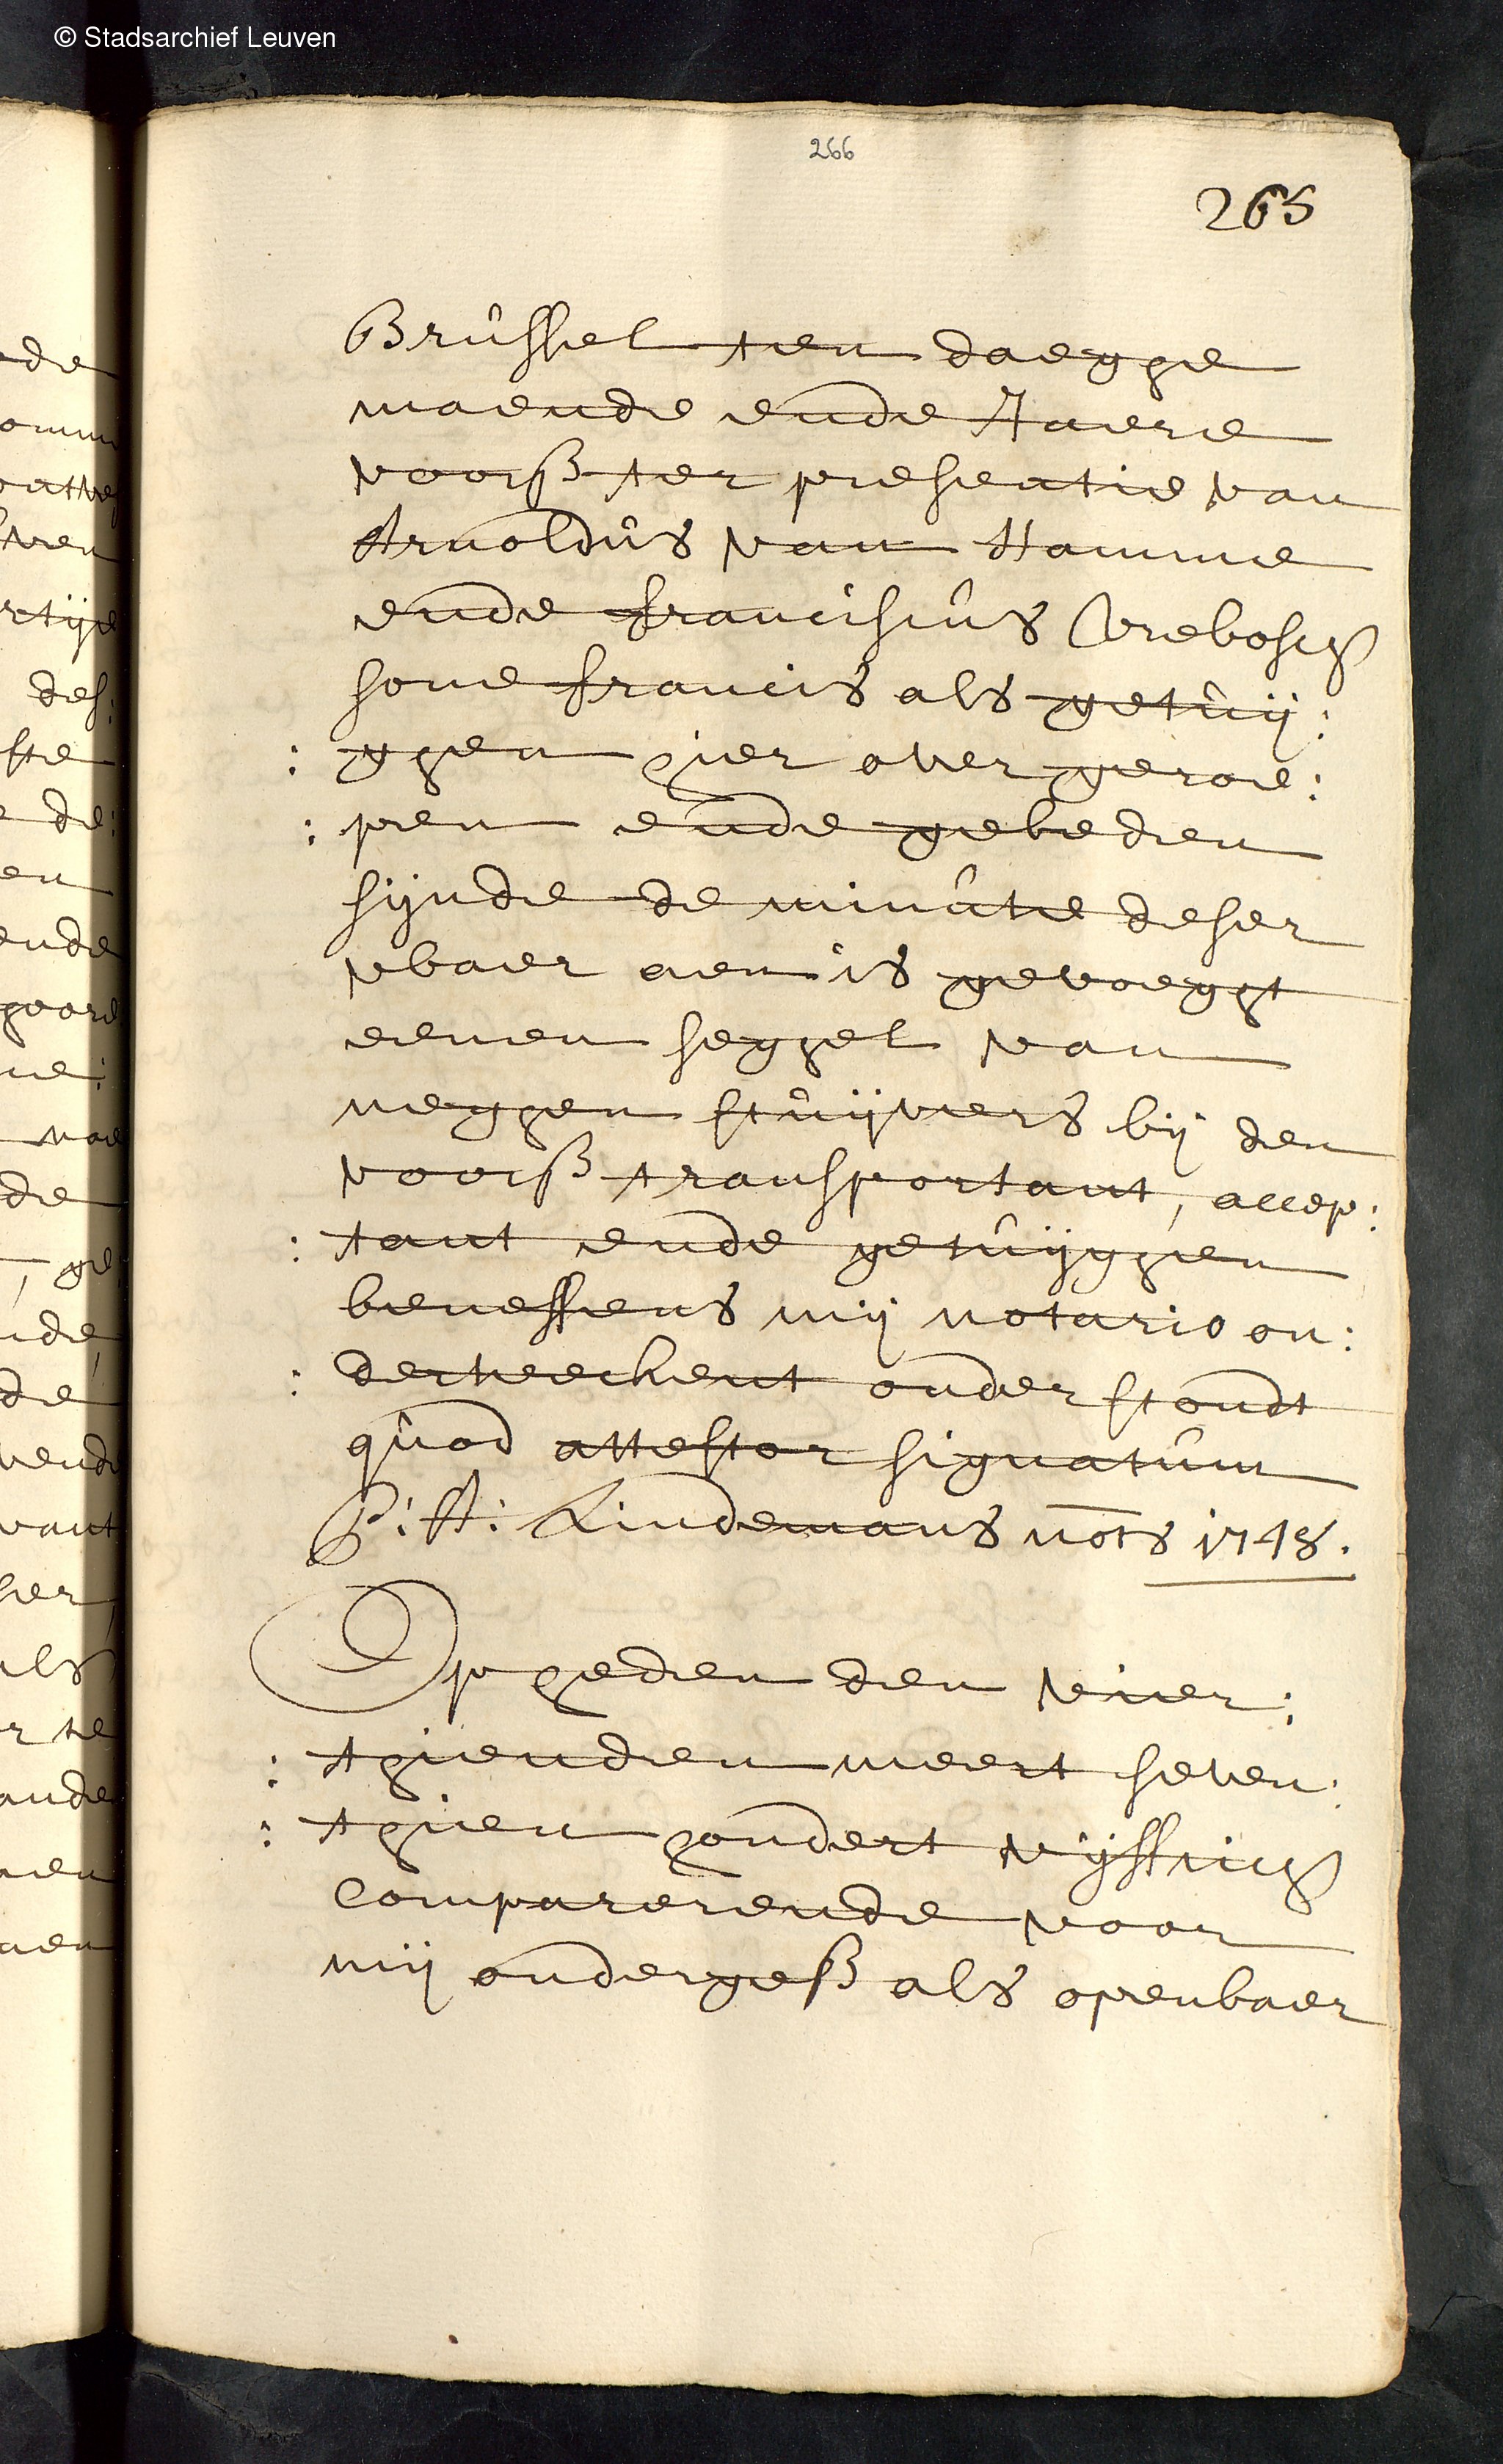 © Stadsarchief Leuven
266
265
Brussel ten daeghe
maende ende Jaere
voorss ter presentie van
Arnoldus van Hamme
ende franciscus Vrebosch
sone francis als getuij:
: ghen hier over geroe:
: pen ende gebeden
sijnde de minute deser
vbaer aen is gevoeght
eenen seghel van
neghen stuijvers bij den
voorss transportant, accep:
: tant ende getuijghen
beneffens mij notario on:
: derteeckent onderstondt
quod attestor signatum
P: A: Lindemans nots 1748.
Op heden den vier:
: thienden meert seven:
: thien hondert vijfftich
Comparerende voor
mij onderges als openbaer